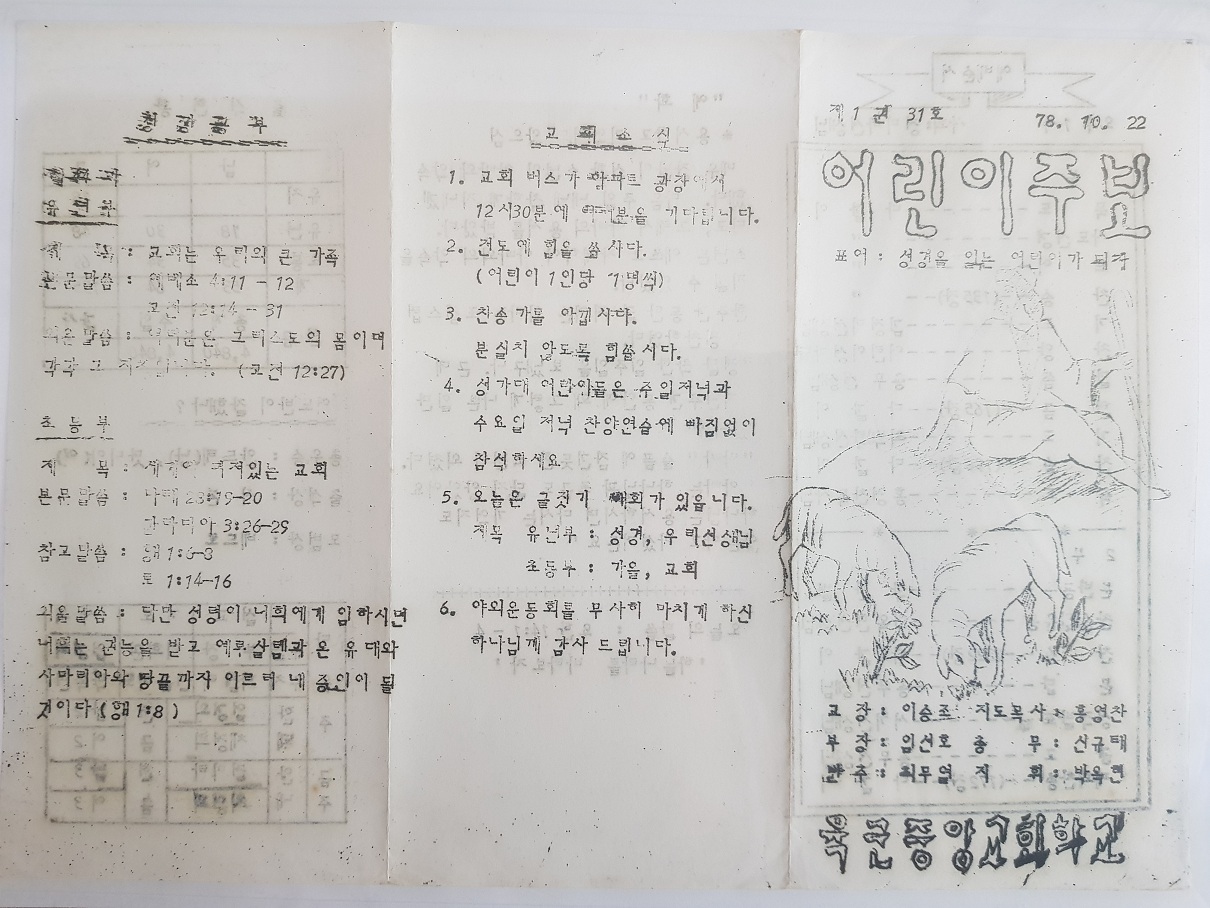 성경공부
공과
유년부
제 목 : 교회는 우리의 큰 가족
본문말씀 : 에베소 4:11 - 12
고전 12:14 - 31
외울말씀 : 여러분은 그리스도의 몸이며
각각 그 지체입니다. (고전 12:27)
초등부
제 목 : 세계에 퍼져있는 교회
본문말씀 : 마태 28:19-20
갈라디아 3:26-29
참고말씀 : 행 1:6-8
롬 1:14-16
외울말씀 : 다만 성령이 너희에게 임하시면
너희는 권능을 받고 예루살렘과 온 유대와
사마리아와 땅끝까지 이르러 내 증인이 될
것이다 (행 1:8)
교회소식
1. 교회 버스가 아파트 광장에서
12시30분에 여러분을 기다립니다.
2. 전도에 힘을 씁시다.
(어린이 1인당 1명씩)
3. 찬송가를 아낍시다.
분실치 않도록 힘씁시다.
4. 성가대 어린이들은 주일저녁과
수요일 저녁 찬양연습에 빠짐없이
참석하세요
5. 오늘은 글짓기 대회가 있읍니다.
제목 유년부 : 성경, 우리선생님
초등부 : 가을, 교회
6. 야외운동회를 무사히 마치게 하신
하나님께 감사 드립니다.
제 1 권 31호 78. 10. 22
어린이주보
표어 : 성경을 읽는 어린이가 되자
교 장 : 이승조 지도목사 : 홍영찬
부 장 : 임선호 총 무 : 신규태
반 주 : 최무열 지 휘 : 박옥현
중앙교회학교